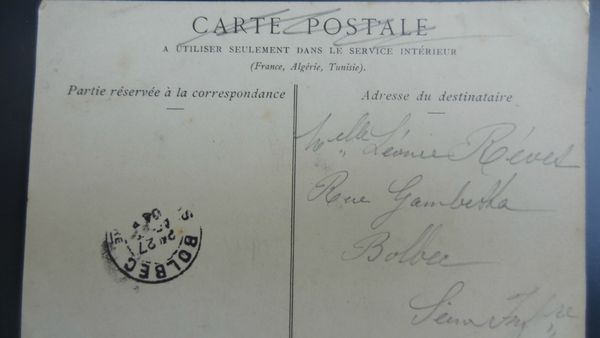 CARTE POSTALE
A UTILISER SEULEMENT DANS LE SERVICE INTÉRIEUR
(France, Algérie, Tunisie).
Partie réservée à la correspondance
Adresse du destinataire
Melle Léonie Réves
Rue Gambetta
Bolbec
Seine Infre
BOLBEC
27
04